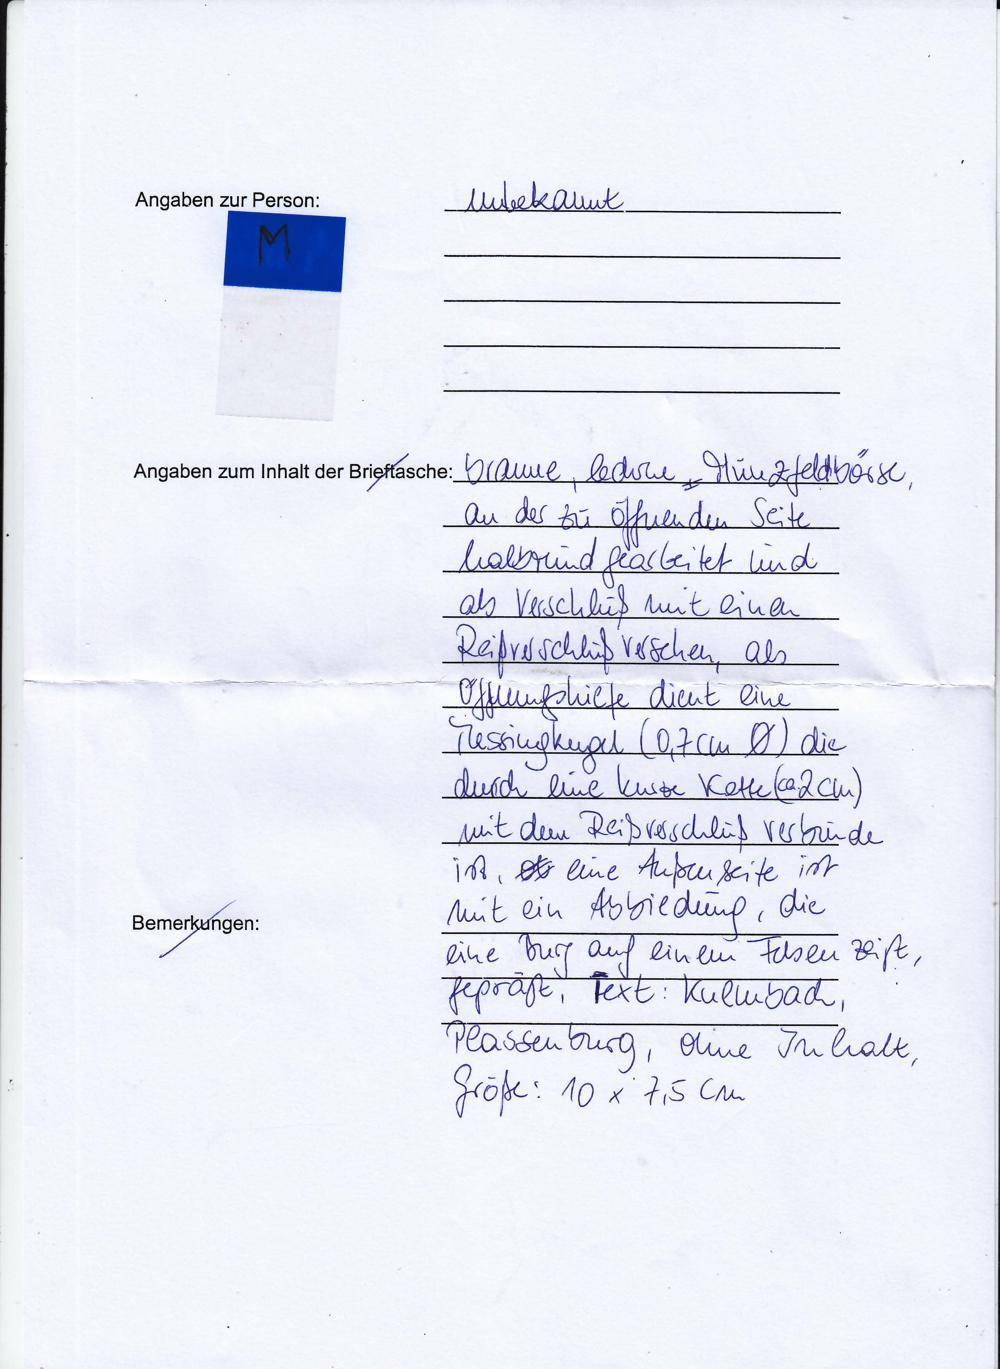 Angaben zur Person: unbekannt
M
Angaben zum Inhalt der Brieftasche: braune, lederne Münzgeldbörse,
an der zu öffnenden Seite
halbrund gearbeitet und
als Verschluß mit einen
Reißverschluß versehen, als
Öffnungshilfe dient eine
Messingkugel (0,7cm Ø) die
durch eine kurze Kette (ca 2cm)
mit dem Reißverschluß verbunde
ist, eine Außenseite ist
Bemerkungen: mit ein Abbiedung, die
eine Burg auf einem Felsen zeigt,
geprägt, Text: Kulmbach,
Plassenburg, ohne Inhalt,
Größe: 10 x 7,5 cm